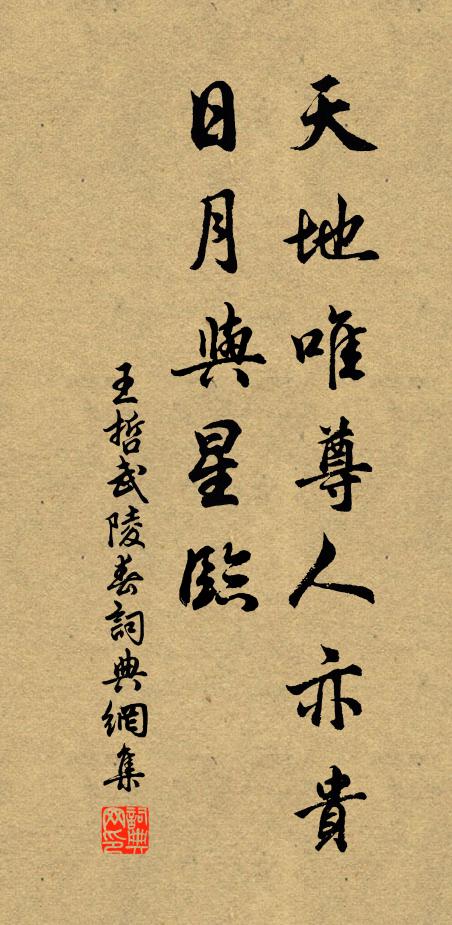 天地唯尊人亦貴
日月與星臨
王哲武陵春詞典網集
詞典网印